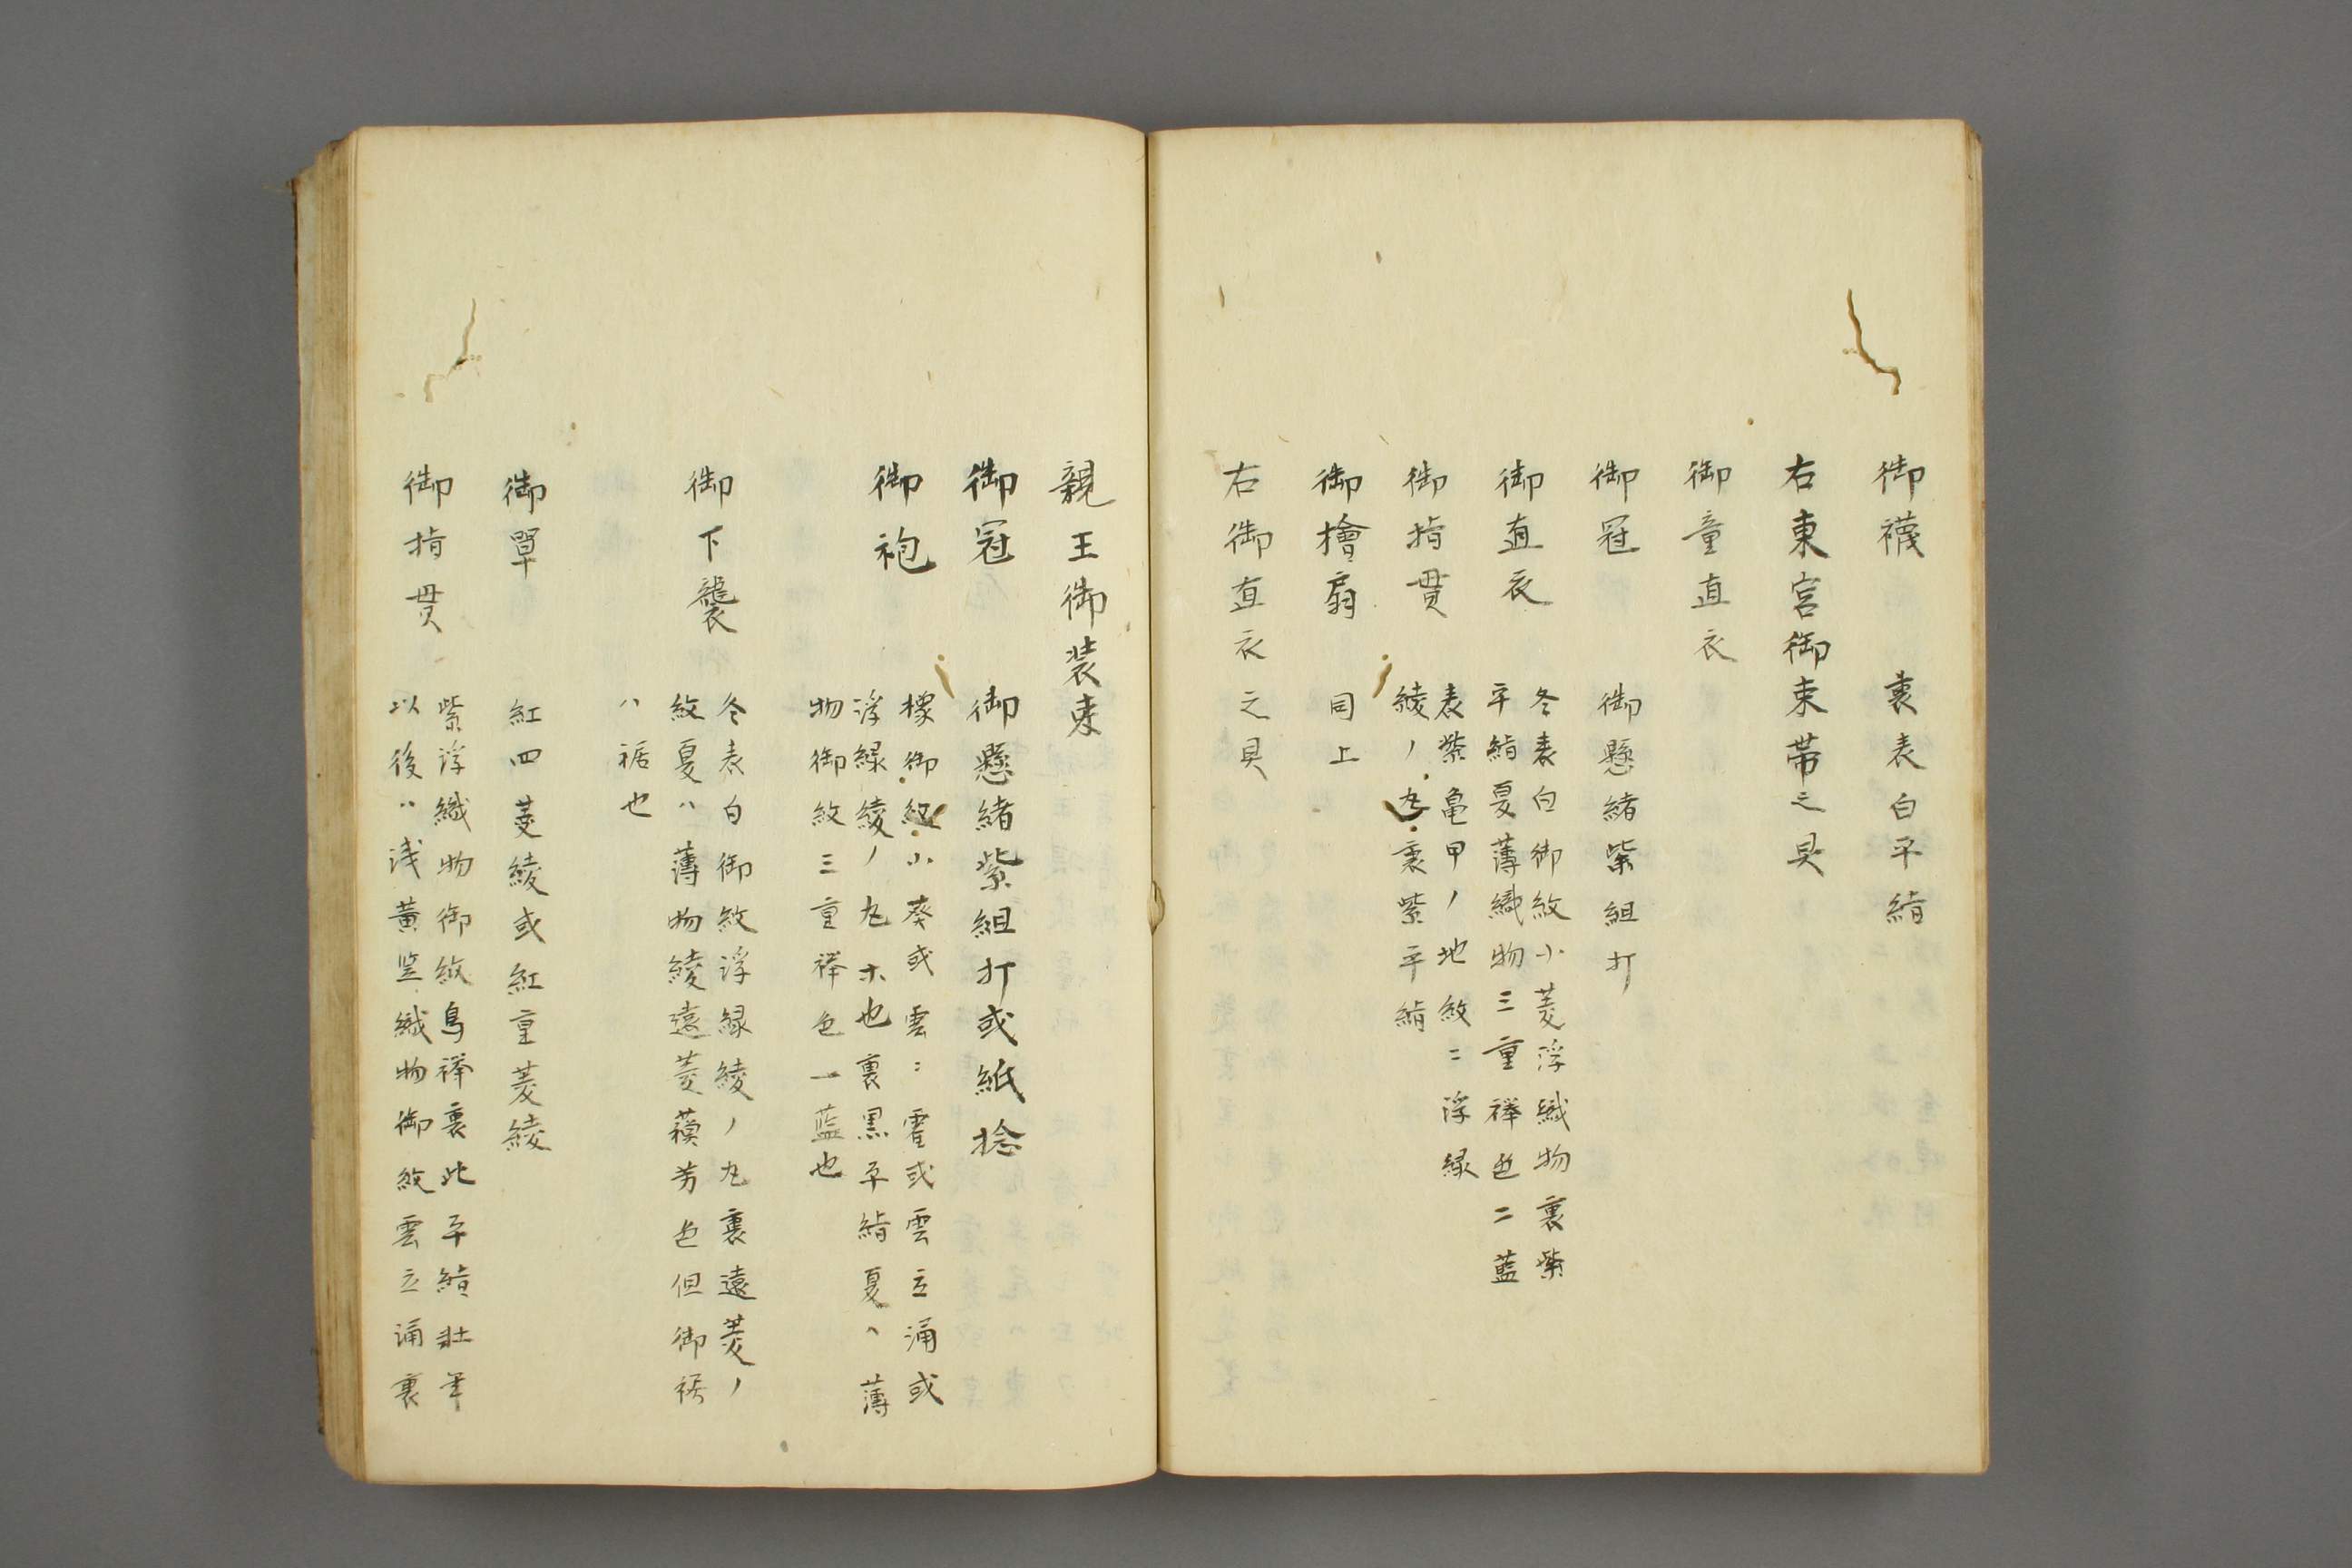 御襪　裏表白平絹
右東宮御束帯之具
御童直衣
御冠　御懸緒紫組打
御直衣　冬表白御紋小菱浮織物裏紫
平絹夏薄織物三重襷色二藍
御指貫　表紫亀甲ノ地紋ニ浮線
綾ノ丸裏紫平絹
御檜扇　同上
右御直衣之具
親王御装束
御冠　御懸緒紫組打或紙捻
御袍　橡御紋小葵或雲ニ霍或雲立涌或
浮線綾ノ丸ホ也裏黒平絹夏ハ薄
物御紋三重襷色一藍也
御下襲　冬表白御紋浮線綾ノ丸裏遠菱ノ
紋夏ハ薄物綾遠菱蘓芳色但御裾
ハ裾也
御單　紅四菱綾或紅重菱綾
御指貫　紫浮織物御紋鳥襷裏此平絹壮年
以後ハ浅黄竪織物御紋雲立涌裏